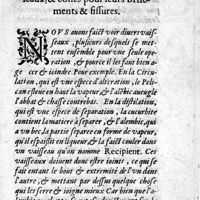 seaux, & colles pour leurs brise-
ments & fissures.
NOVS auons faict voir diuers vais-
seaux, plusieurs desquels se met-
tent ensemble pour vne seule ope-
ration, & pource il les faut bien a-
gencer & ioindre. Pour exemple. En la Circu-
lation, qui est vne espece d'alteration, le Peli-
can est ene en haut la vapeur, & l'alebic aueugle
l'abbat & chasse contrebas. En la distilation,
qui est vne espece de separation, la cucurbite
contient la matiere à separer, & l'alembic, qui
a vn bec la partie separee en forme de vapeur,
qui s'espaissit en liqueur, & la faict couler dans
vn vaisseau qu'on nomme Recipient. Ces
vaisseaux doiuent donc estre ioints, ce qui se
fait entant le bout & extremité de l'vn dans
l'autre, & mettant par dessus quelque chose
qui les serre & ioigne mieux Car bien que l'a-